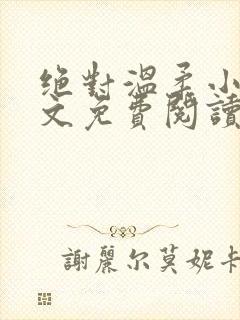 絕對溫柔小
文免費閱讀
謝麗尔莫妮卡